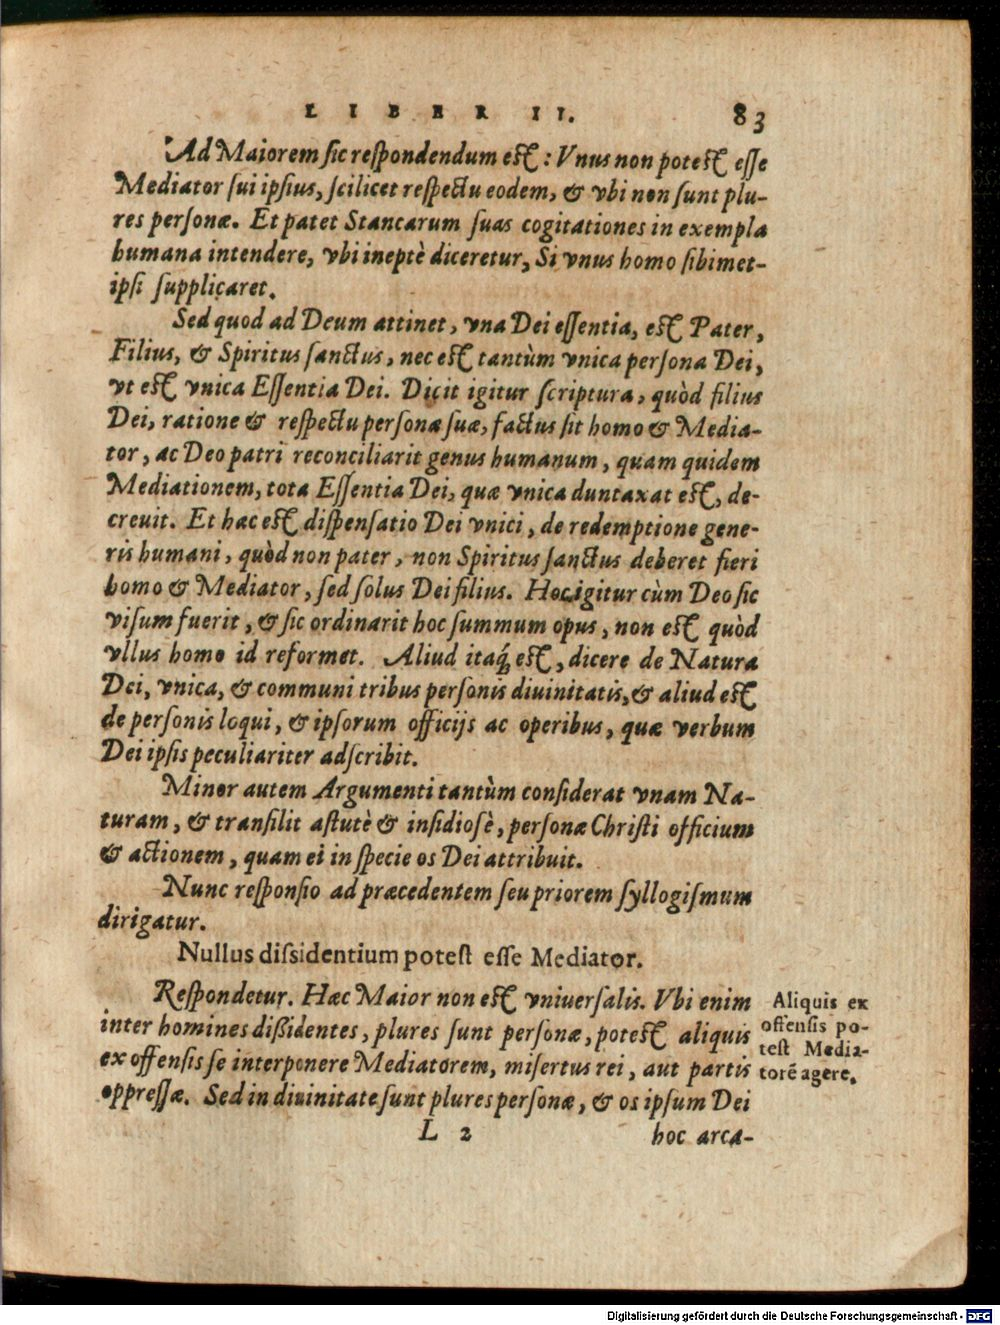 LIBER II. 83
Ad Maiorem sic respondendum est: Vnus non potest esse
Mediator sui ipsius, scilicet respectu eodem, & vbi non sunt plu-
res personæ. Et patet Stancarum suas cogitationes in exempla
humana intendere, vbi ineptè diceretur, Si vnus homo sibimet-
ipsi supplicaret.
Sed quod ad Deum attinet, vna Dei essentia, est Pater,
Filius, & Spiritus sanctus, nec est tantùm vnica persona Dei,
vt est vnica Essentia Dei. Dicit igitur scriptura, quòd filius
Dei, ratione & respectu personæ suæ, factus sit homo & Media-
tor, ac Deo patri reconciliarit genus humanum, quam quidem
Mediationem, tota Essentia Dei, quæ vnica duntaxat est, de-
creuit. Et hæc est dispensatio Dei vnici, de redemptione gene-
ris humani, quòd non pater, non Spiritus sanctus deberet fieri
homo & Mediator, sed solus Dei filius. Hoc igitur cùm Deo sic
visum fuerit, & sic ordinarit hoc summum opus, non est quòd
vllus homo id reformet. Aliud itaq́ est, dicere de Natura
Dei, vnica, & communi tribus personis diuinitatis, & aliud est
de personis loqui, & ipsorum officijs ac operibus, quæ verbum
Dei ipsis peculiariter adscribit.
Minor autem Argumenti tantùm considerat vnam Na-
turam, & transilit astutè & insidiosè, personæ Christi officium
& actionem, quam ei in specie os Dei attribuit.
Nunc responsio ad præcedentem seu priorem syllogismum
dirigatur.
Nullus dissidentium potest esse Mediator.
Respondetur. Hæc Maior non est vniuersalis. Vbi enim
inter homines dißidentes, plures sunt personæ, potest aliquis
ex offensis se interponere Mediatorem, misertus rei, aut partis
oppressæ. Sed in diuinitate sunt plures personæ, & os ipsum Dei
Aliquis ex
offensis po-
test Media-
torē agere.
L 2 hoc arca-
Digitalisierung gefördert durch die Deutsche Forschungsgemeinschaft - DFG